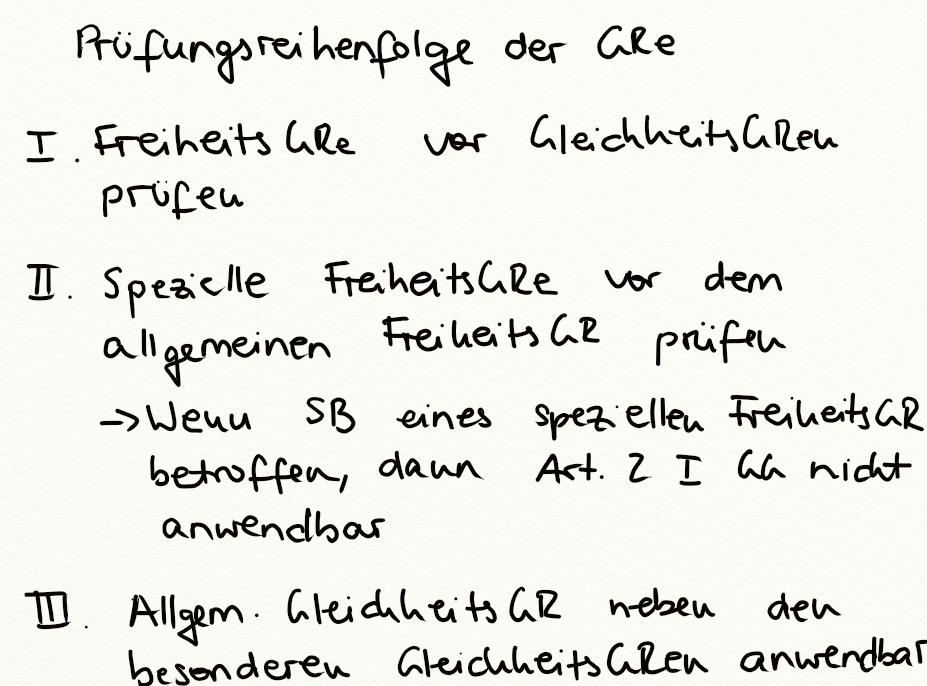 Prüfungsreihenfolge der GRe
I. FreiheitsGRe vor GleichheitsGRen
prüfen
II. Spezielle FreiheitsGRe vor dem
allgemeinen FreiheitsGR prüfen
-> Wenn SB eines speziellen FreiheitsGR
betroffen, dann Art. 2 I GG nicht
anwendbar
III. Allgem. GleichheitsGR neben den
besonderen GleichheitsGRen anwendbar